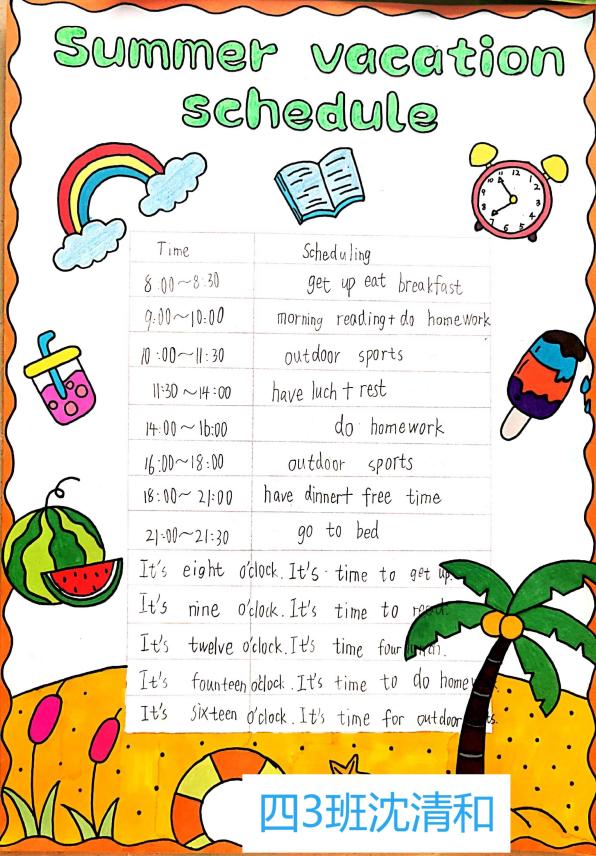 Summer vacation
schedule
Time Scheduling
8:00~8:30 get up eat breakfast
9:00~10:00 morning reading+do homework
10:00~11:30 outdoor sports
11:30~14:00 have luch+rest
14:00~16:00 do homework
16:00~18:00 outdoor sports
18:00~21:00 have dinner+ free time
21:00~21:30 go to bed
It's eight o'clock. It's time to get up.
It's nine o'clock. It's time to read
It's twelve o'clock. It's time four lunch.
It's founteen o'clock. It's time to do homew
It's sixteen o'clock. It's time for outdoor
四3班沈清和